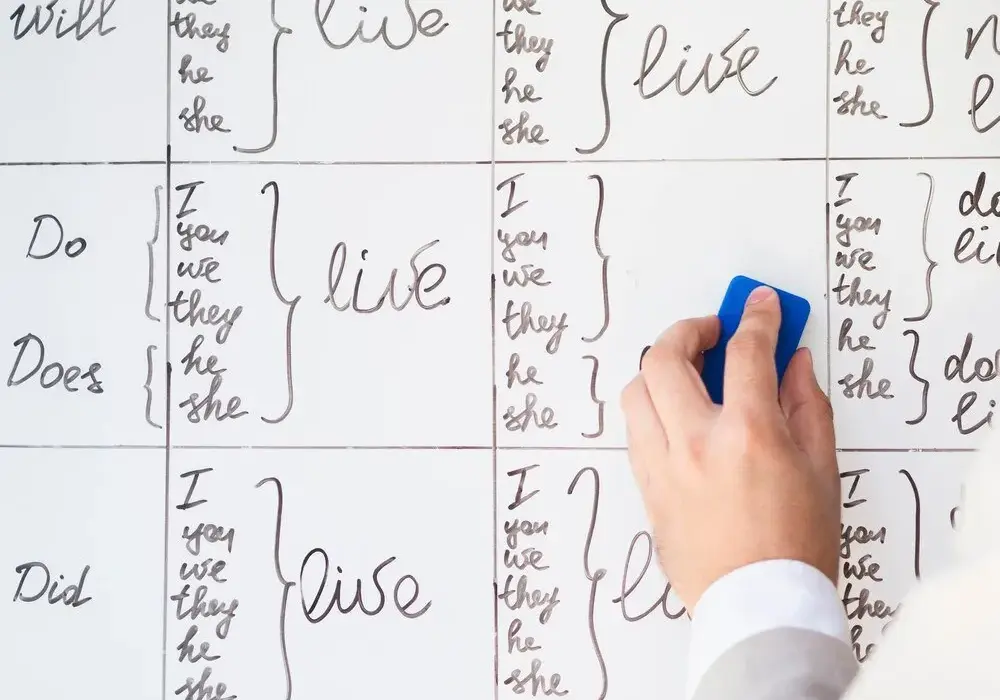 Will
they
he
she
live
we
they
he
she
live
they
he
she
Do
Does
I
you
we
they
he
she
live
I
you
we
they
he
she
I
you
we
they
he
she
Did
I
you
we
they
he
she
live
I
you
we
they
he
she
I
you
we